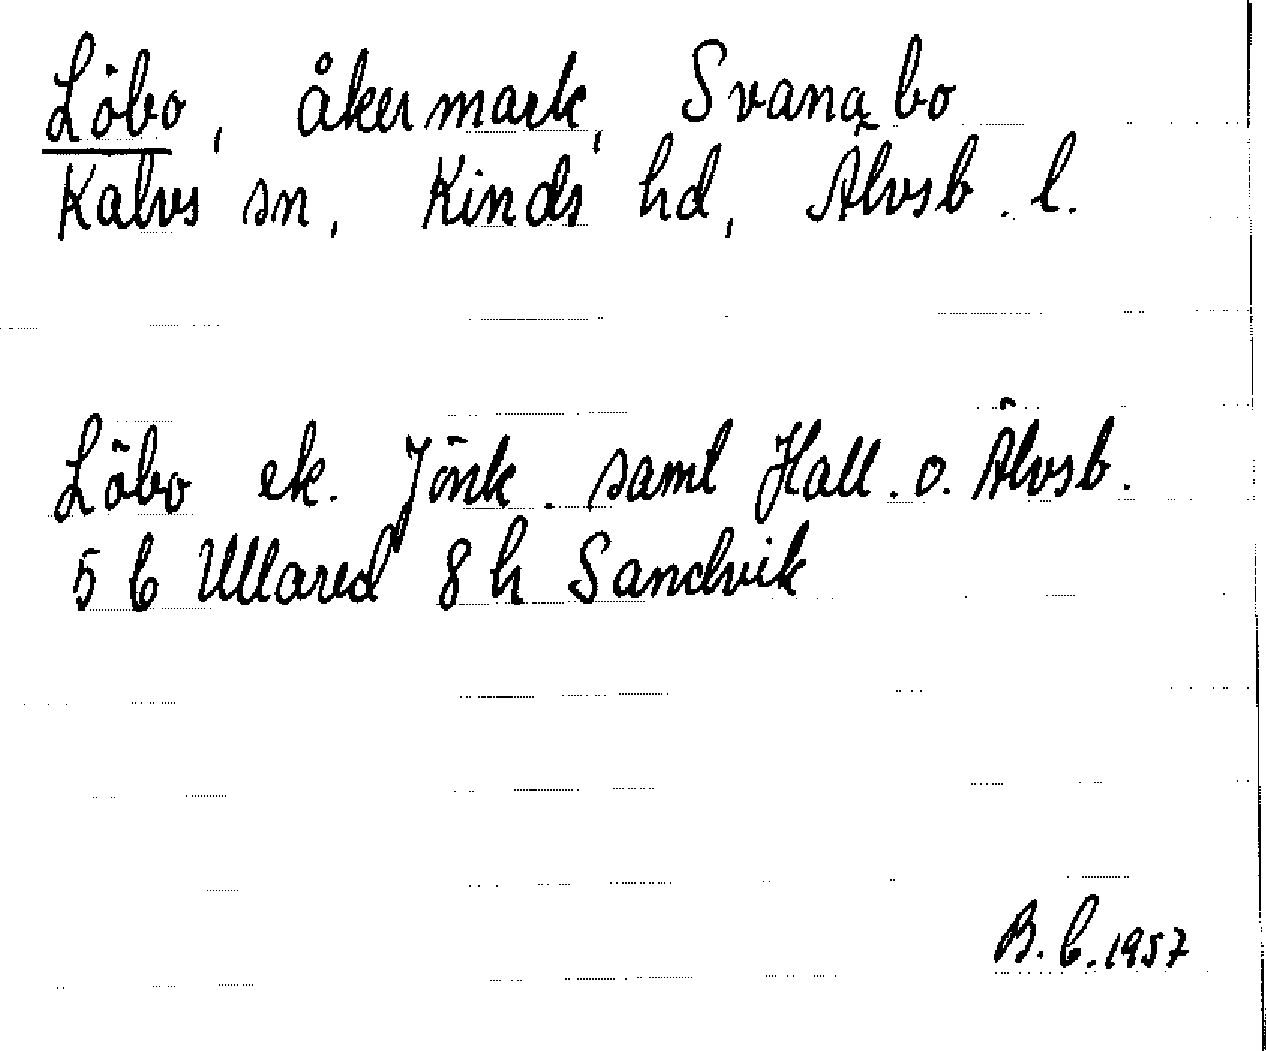 Löbo, åkermark, Svanabo
Kalvs sn, Kinds hd, Älvsb. l.
Löbo ek. Jönk. samt Hall. o. Älvsb.
5 b Ullared 8 h Sandvik
B. b. 1957